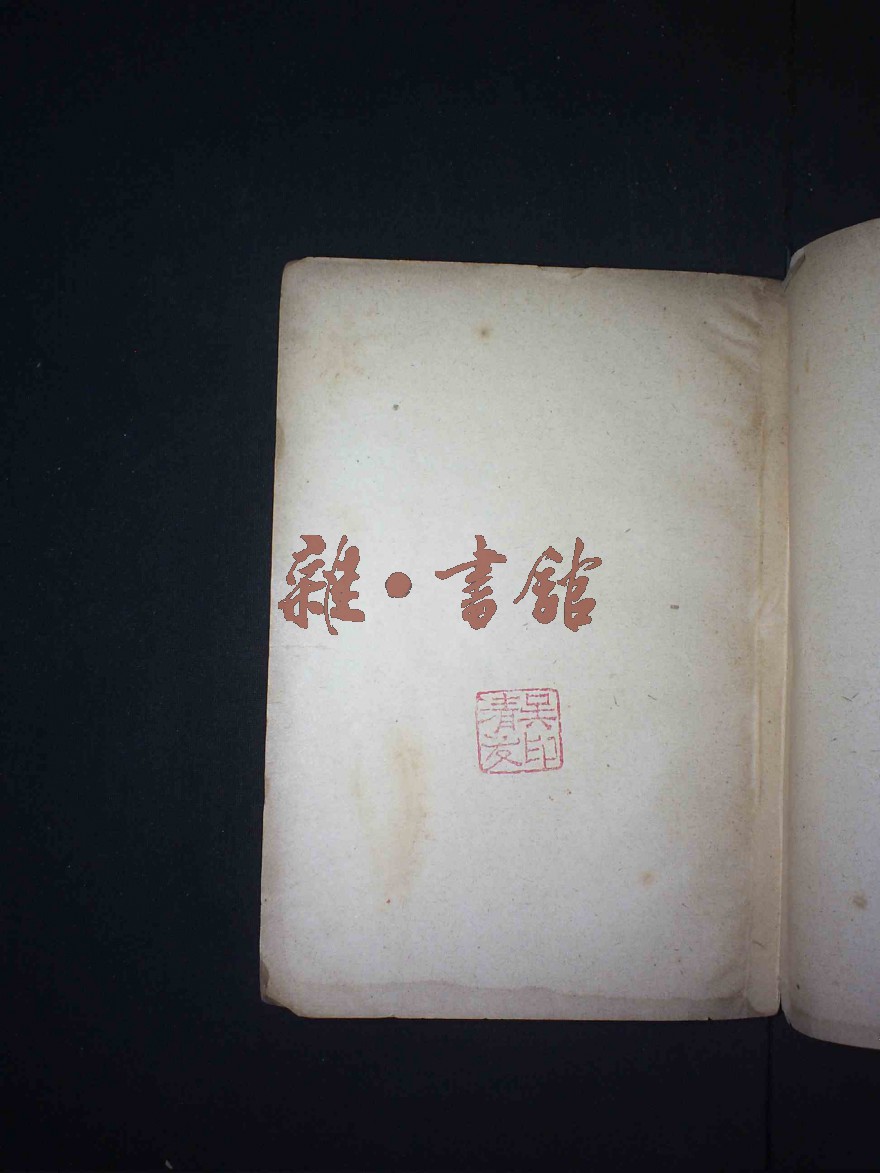 雜•書館
吳印
清友